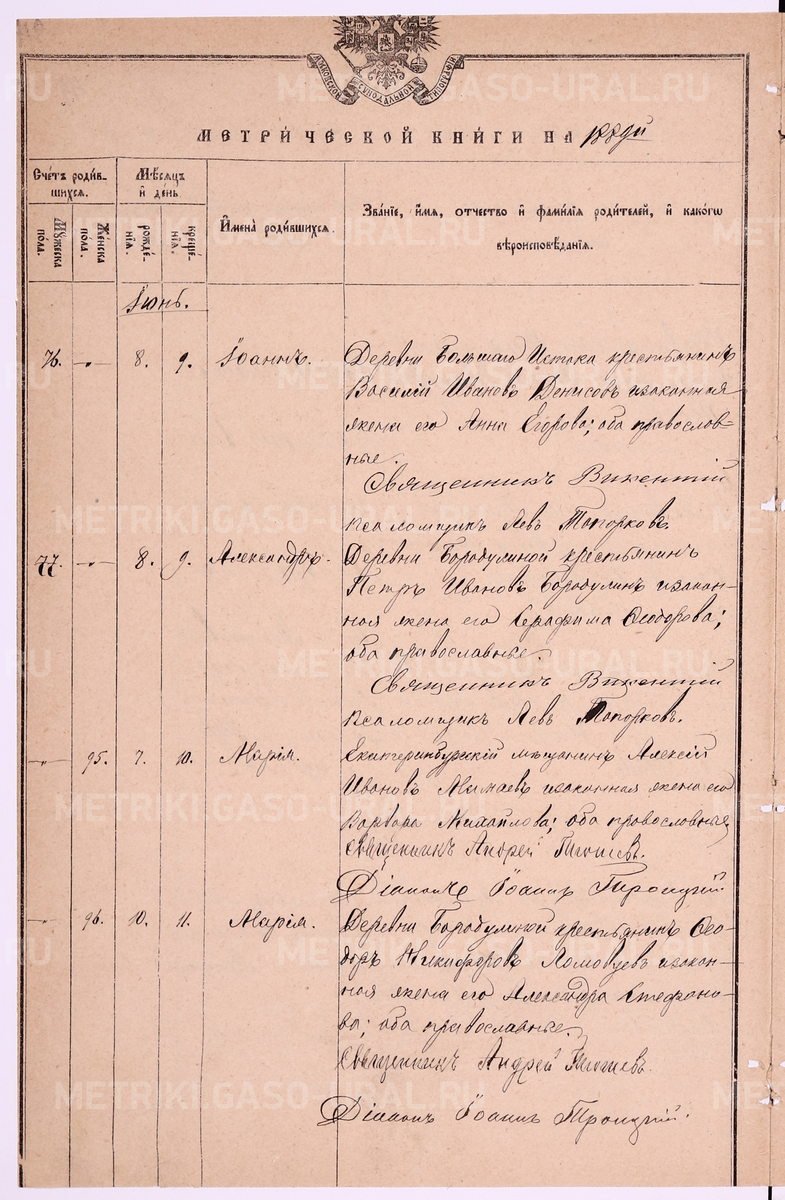 МОСКОВСКОЙ СѴНОДАЛЬНОЙ ТИПОГРАФІИ
МЕТРИ́ЧЕСКОЙ КНИ́ГИ НА
Сче́тъ роди́в-
шихсѧ.
Мѣ́сѧцъ
и҆ де́нь
И҆мена̀ роди́вшихсѧ.
Зва́нїе, и҆́мѧ, ѻ҆тчество и҆ фами́лїѧ роди́телей, и҆ како́гѡ
вѣроисповѣ́данїѧ.
Мꙋ́жеска
по́ла.
Же́нска
по́ла.
рожде́-
нїѧ.
креще́-
нїѧ.
Іюнь.
76. -„- 8. 9. Іоаннъ. Деревни Большаго Истока крестьянинъ
Василій Ивановъ Денисовъ и законная
жена его Анна Егорова; оба православ-
ные.
Священникъ Викентій
Псаломщикъ Левъ Топорковъ.
77. -„- 8. 9. Александръ. Деревни Бородулиной крестьянинъ
Петръ Ивановъ Бородулинъ и закон-
ная жена его Серафима Ѳеодорова;
оба православные.
Священникъ Викентій
Псаломщикъ Левъ Топорковъ.
-„- 95. 7. 10. Марія. Екатеринбургскій мѣщанинъ Алексій
Ивановъ Минаевъ и законная жена его
Варвара Михайлова; оба православные
Священникъ Андрей
Діаконъ Іоаннъ Троицкій
-„- 96. 10. 11. Марія. Деревни Бородулиной крестьянинъ Ѳео-
доръ Никифоровъ Ломовцевъ и закон-
ная жена его Александра Стефано-
ва; оба православные.
Священникъ Андрей
Діаконъ Іоаннъ Троицкій.
METRIKI.GASO-URAL.RU